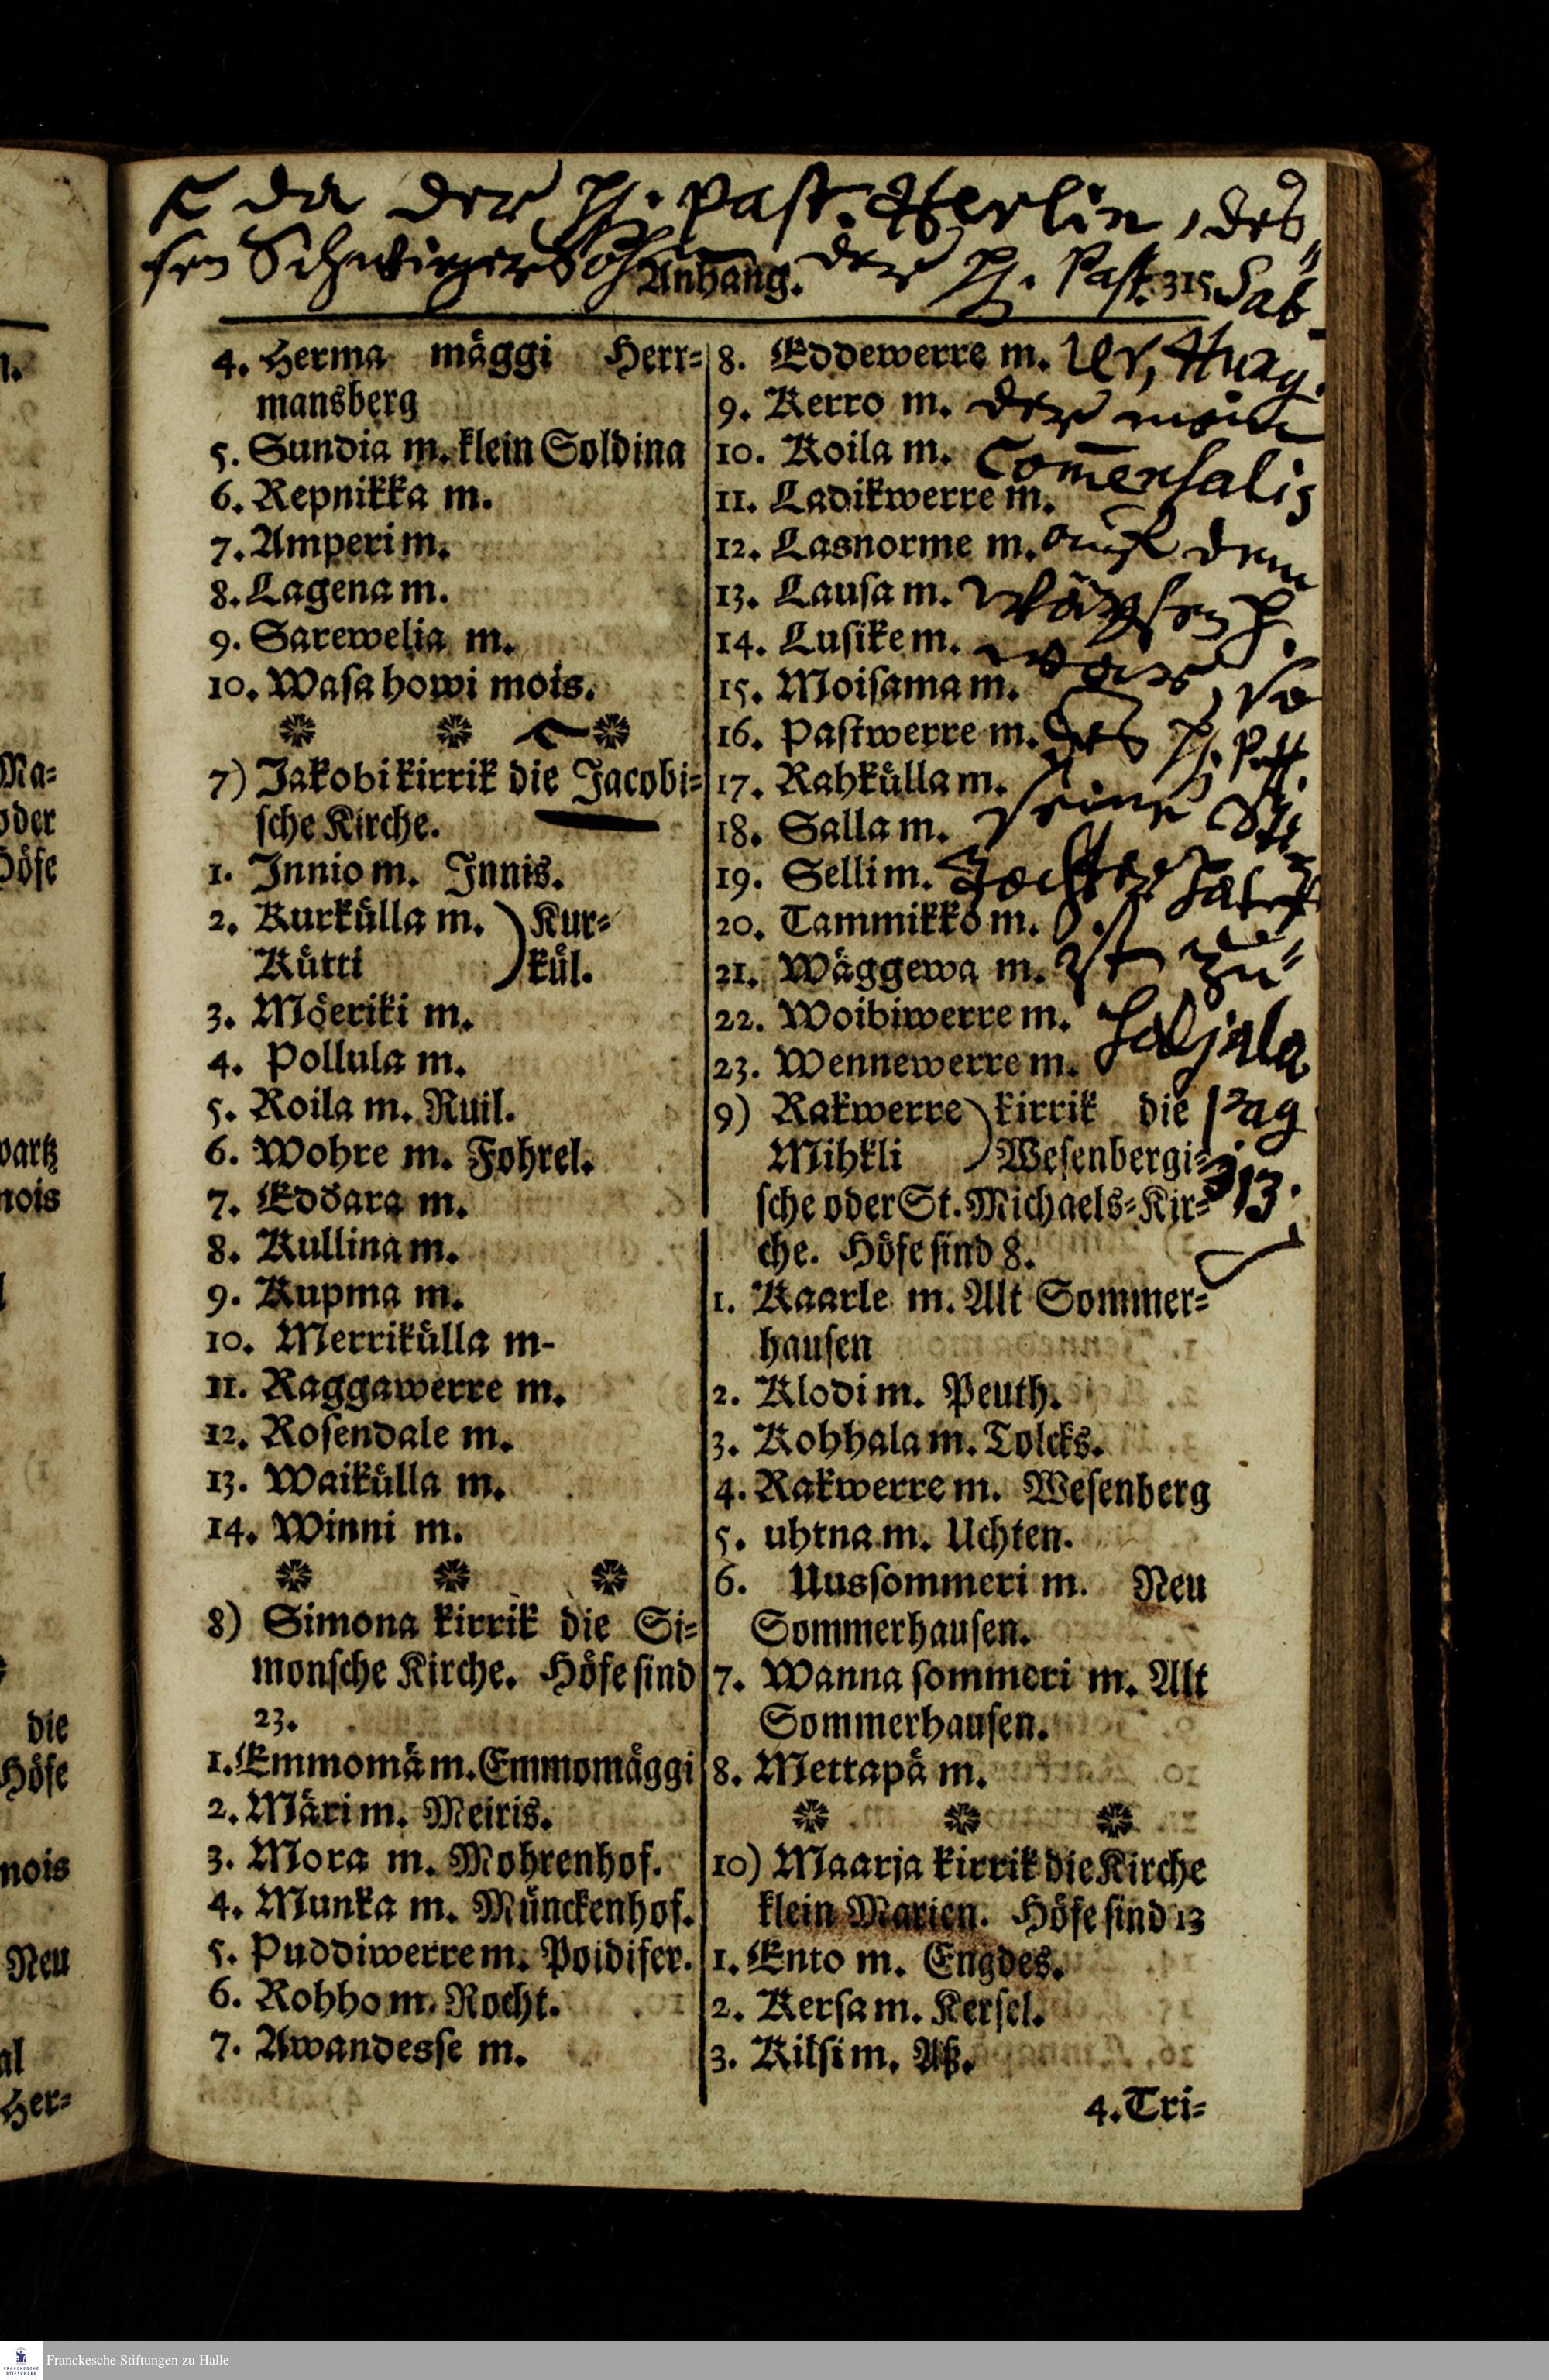 da der H. Past. Herlin, des-
sen Schwieger Sohn der H. Past. Sab-
Anhang. 315
4. Herma mäggi Herr-
mansberg
5. Sundia m. klein Soldina
6. Repnikka m.
7. Amperi m.
8. Lagena m.
9. Sarewelia m.
10. Wasahowi mois.
7) Jakobi kirrik die Jacobi-
sche Kirche.
1. Innio m. Innis.
2. Kurkülla m. ) Kur-
Kütti ) kül.
3. Möeriki m.
4. Pollula m.
5. Roila m. Ruil.
6. Wohre m. Fohrel.
7. Eddara m.
8. Kullina m.
9. Kupma m.
10. Merrikülla m-
11. Raggawerre m.
12. Rosendale m.
13. Waikülla m.
14. Winni m.
8) Simona kirrik die Si-
monsche Kirche. Höfe sind
23.
1. Emmomä m. Emmomäggi
2. Märi m. Meiris.
3. Mora m. Mohrenhof.
4. Munka m. Münckenhof.
5. Puddiwerre m. Poidifer.
6. Rohho m. Rocht.
7. Awandesse m.
8. Eddewerre m.
9. Kerro m.
10. Koila m.
11. Ladikwerre m.
12. Lasnorme m.
13. Lausa m.
14. Lusike m.
15. Moisama m.
16. Pastwerre m.
17. Rahkülla m.
18. Salla m.
19. Selli m.
20. Tammikko m.
21. Wäggewa m.
22. Woibiwerre m.
23. Wennewerre m.
9) Rakwerre ) kirrik die
Mihkli ) Wesenbergi-
sche oder St. Michaels-Kir-
che. Höfe sind 8.
1. Kaarle m. Alt Sommer-
hausen
2. Klodi m. Peuth.
3. Kohhala m. Tolcks.
4. Rakwerre m. Wesenberg
5. uhtna m. Uchten.
6. Uussommeri m. Neu
Sommerhausen.
7. Wanna sommeri m. Alt
Sommerhausen.
8. Mettapä m.
10) Maarja kirrik die Kirche
klein Marien. Höfe sind 13
1. Ento m. Engdes.
2. Kersa m. Kersel.
3. Kilsi m. Aß.
4. Tri-
der mein
Com̄ensalis
auf dem
war, so
des H. Past.
seine
Tochter hat
ist zu
Haljala
pag
313.
Ma-
oder
Höfe
wartz
nois
die
Höfe
nois
Neu
al
Her-
Franckesche Stiftungen zu Halle